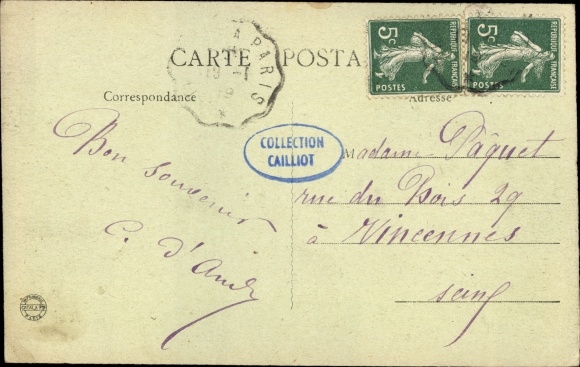 CARTE POSTA
A PARIS
5c 5c
REPUBLIQUE FRANÇAISE REPUBLIQUE FRANÇAISE
POSTES POSTES
Correspondance
Adresse
COLLECTION
CAILLIOT
Bon souvenir
Madame Pâquet
rue du Bois 29
à Vincennes
Seine
C. d'